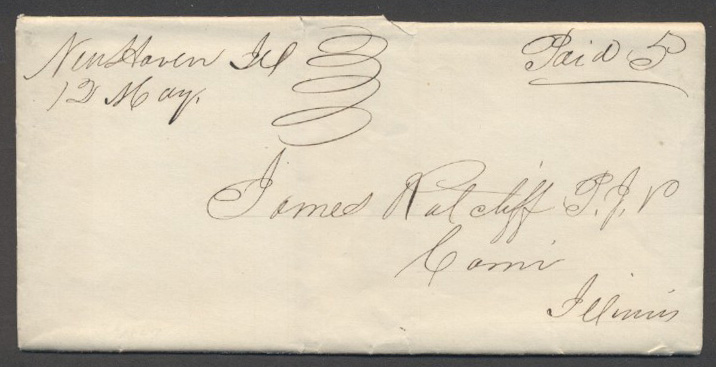 New Haven Ill
12 May.
Paid 5
James Ratcliff P.J.P
Carmi
Illinois